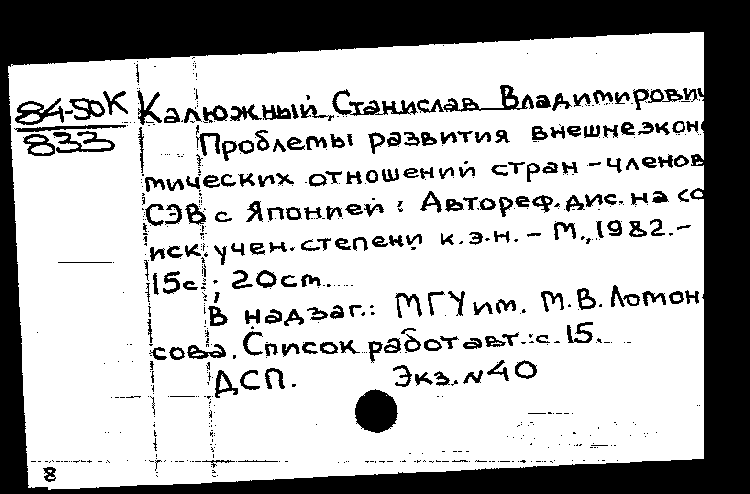 84-50К
833
Калюжный, Станислав Владимирович
Проблемы развития внешнеэкон
тических отношений стран - членов
СЭВ с Японией : Автореф. дис. на со
иск. учен. степени к.э.н. - М., 1982. -
15с. ; 20 см.
В надзаг.: МГУ им. М.В. Ломон
сова. Список работ авт.: с. 15.
ДСП. Экз. №40
8